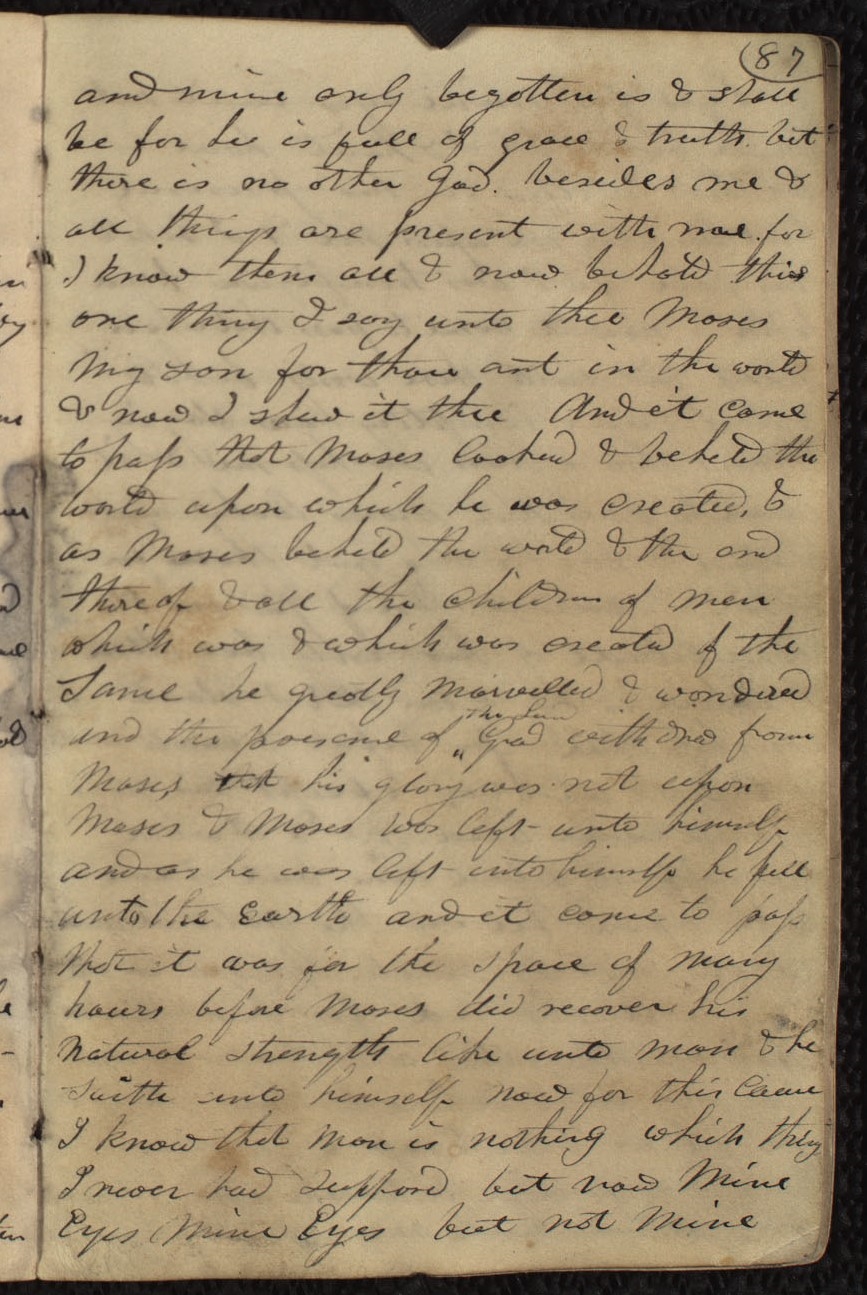 87
and mine only begotten is & shall
be for he is full of grace & truth. but
there is no other God. besides me &
all things are present with me. for
I know them all & now behold this
one thing I say unto thee Moses
my son for thou art in the world
& now I shew it thee And it came
to pass that Moses looked & beheld the
world upon which he was created, &
as Moses beheld the world & the end
thereof & all the Children of men
which was & which was created of the
Same he greatly marvelled & wondered
and the presence of God withdrew from
Moses, that his glory was not upon
Moses & Moses was left unto himself
and as he was left unto himself he fell
unto the Earth and it came to pass
that it was for the space of many
hours before Moses did recover his
natural strength like unto man & he
saith unto himself now for this Cause
I know that man is nothing which thing
I never had Supposed but now Mine
Eyes Mine Eyes but not Mine